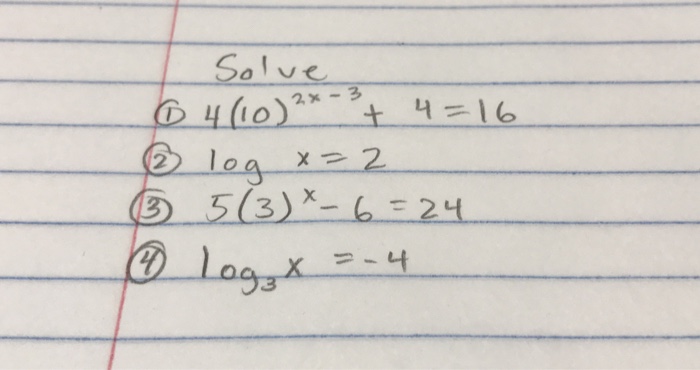 Solve
① 4(10)²ˣ⁻³ + 4 = 16
② log x = 2
③ 5(3)ˣ - 6 = 24
④ log₃ x = -4